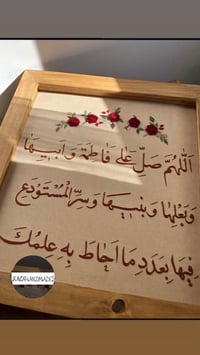 اَللّٰهُمَّ صَلِّ عَلىٰ فٰاطِمَةَ وَ اَبيٖهٰا
وَبَعْلِهٰا وَبَنيٖهٰا وَسِرِّ الْمُسْتَوْدَعِ
فيٖهٰا بِعَدَدِ مٰا اَحٰاطَ بِهِ عِلْمُكَ